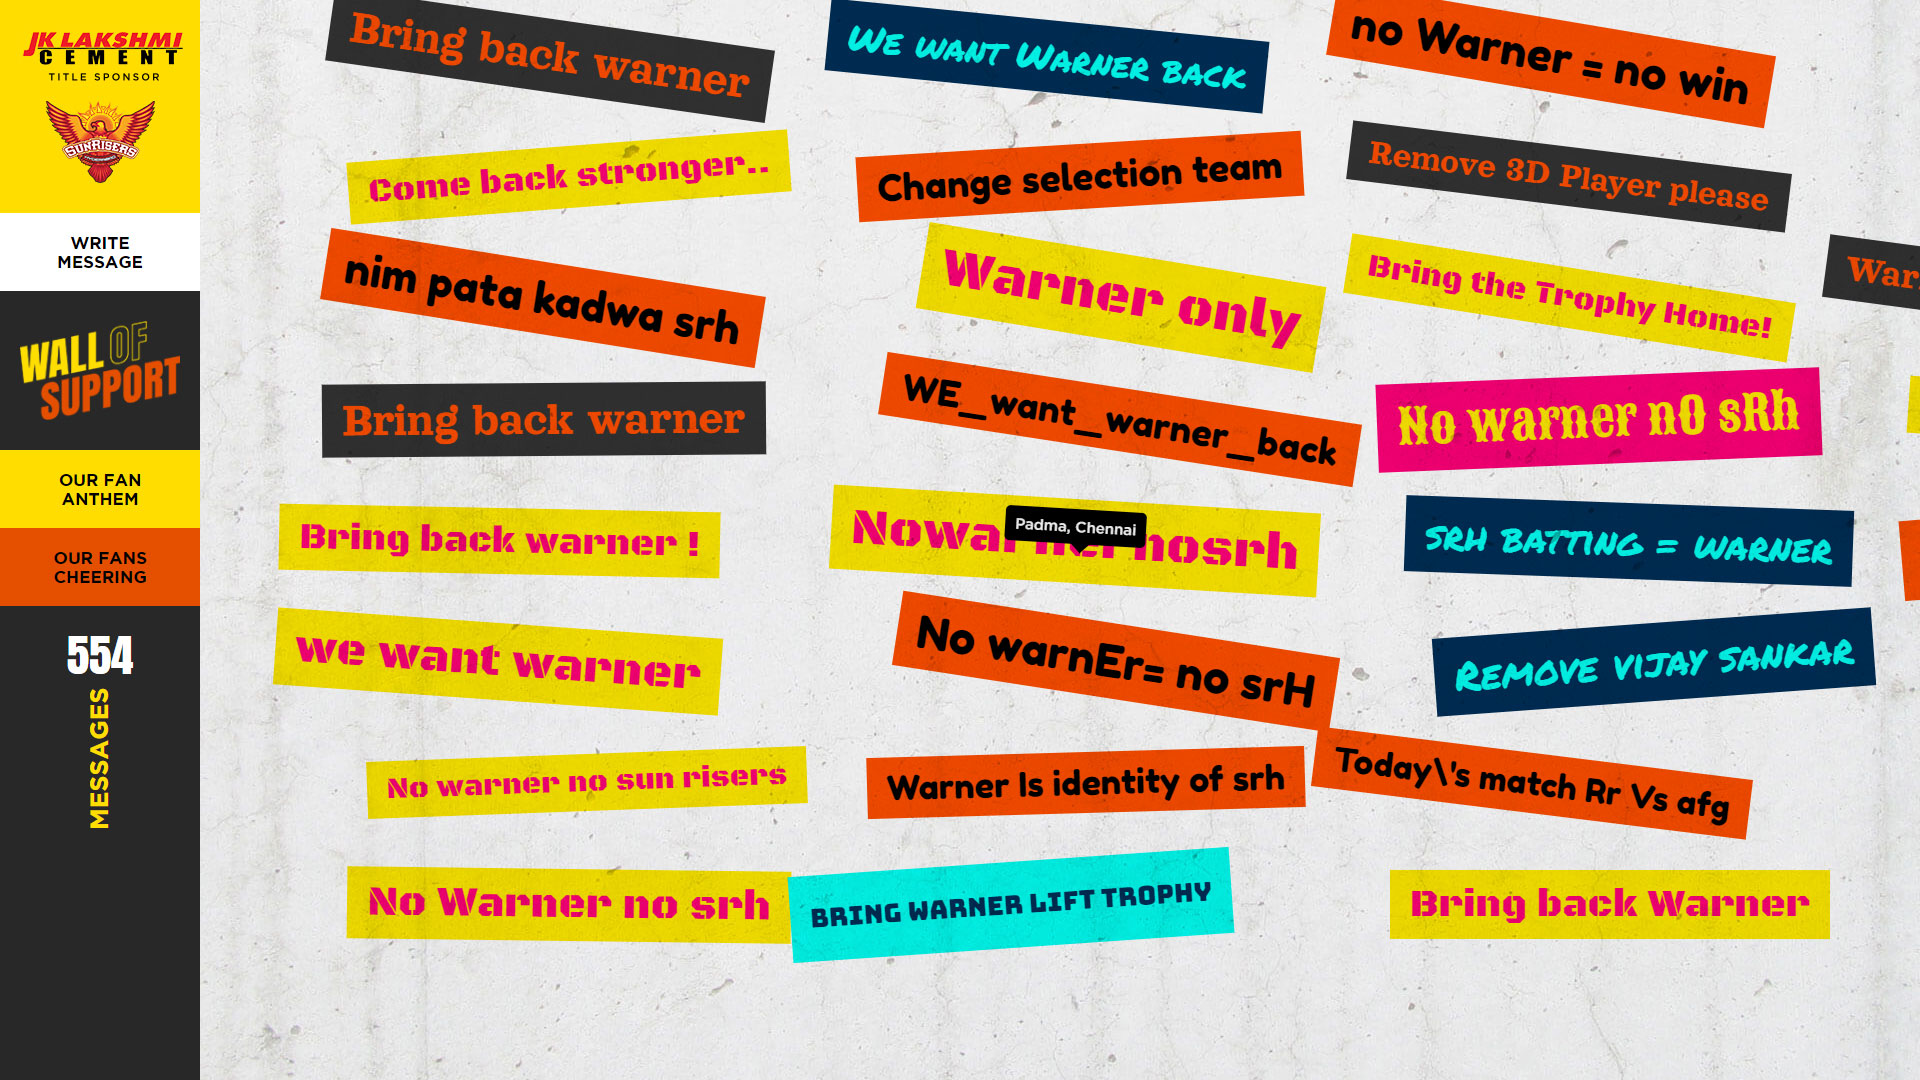 JK LAKSHMI
CEMENT
TITLE SPONSOR
SUNRISERS
WRITE
MESSAGE
WALL OF
SUPPORT
OUR FAN
ANTHEM
OUR FANS
CHEERING
554
MESSAGES
Bring back warner
WE WANT WARNER BACK
no Warner = no win
Come back stronger..
Change selection team
Remove 3D Player please
nim pata kadwa srh
Warner only
Bring the Trophy Home!
War
Bring back warner
WE_want_warner_back
No warner nO sRh
Bring back warner !
Nowarner nosrh
Padma, Chennai
SRH BATTING = WARNER
we want warner
No warnEr= no srH
REMOVE VIJAY SANKAR
No warner no sun risers
Warner Is identity of srh
Today\'s match Rr Vs afg
No Warner no srh
BRING WARNER LIFT TROPHY
Bring back Warner